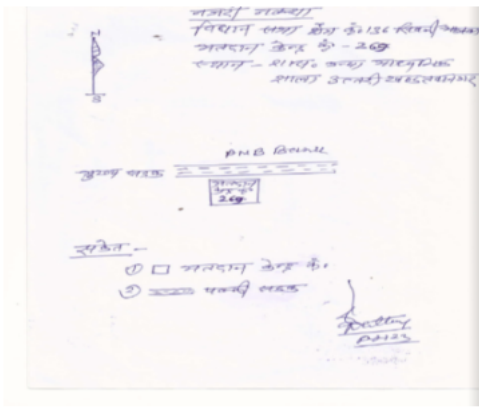 नजरी नक्शा
विधान सभा क्षेत्र क्रं. 136 सिवनी मालवा
मतदान केन्द्र क्रं - 269
स्थान - शास. कन्या माध्यमिक
शाला उत्तरी
N
S
PNB
मुख्य सडक
मतदान
केन्द्र क्रं
269
संकेत -
① मतदान केन्द्र क्रं.
② पक्की सडक